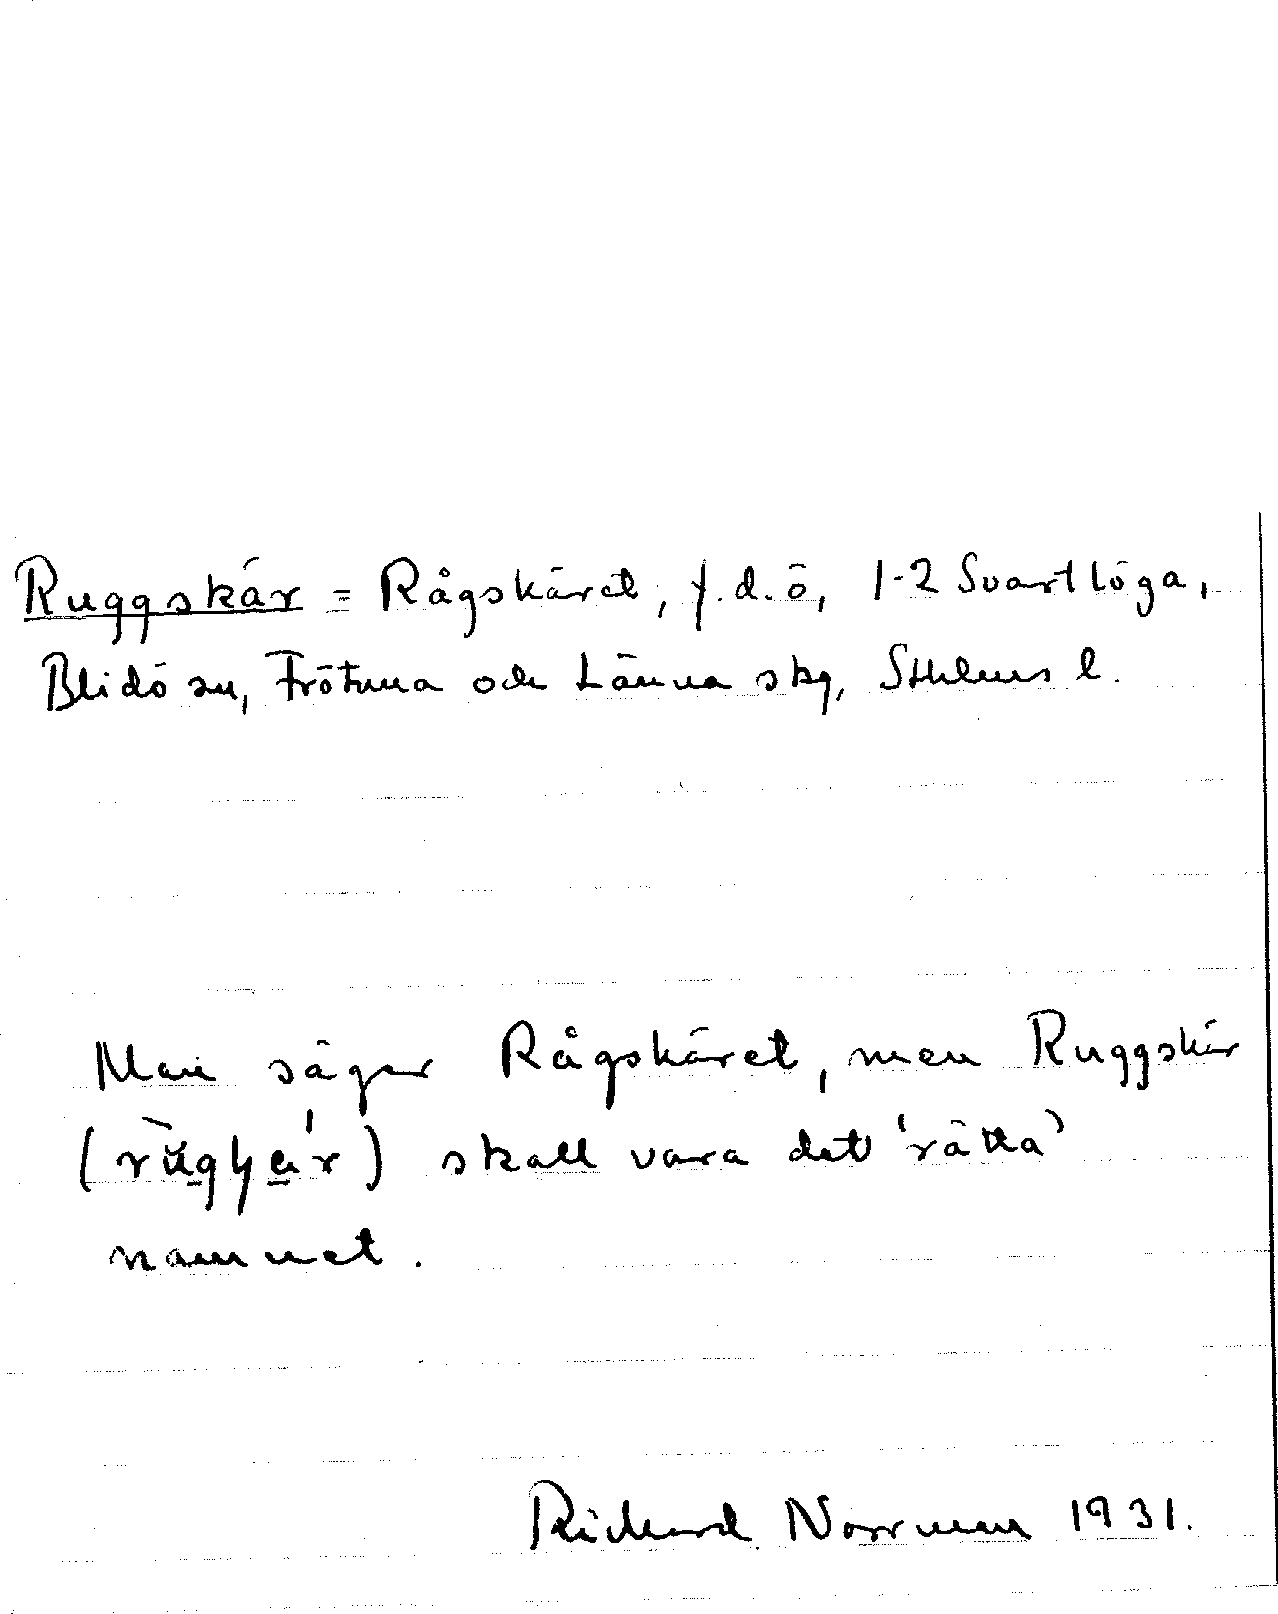 Ruggskär = Rågskäret, f.d. ö, 1-2 Svartlöga,
Blidö sn, Frötuna och Länna skg, Sthlms l.
Man säger Rågskäret, men Ruggskär
skall vara det 'rätta'
namnet.
Richard Norrman 1931.